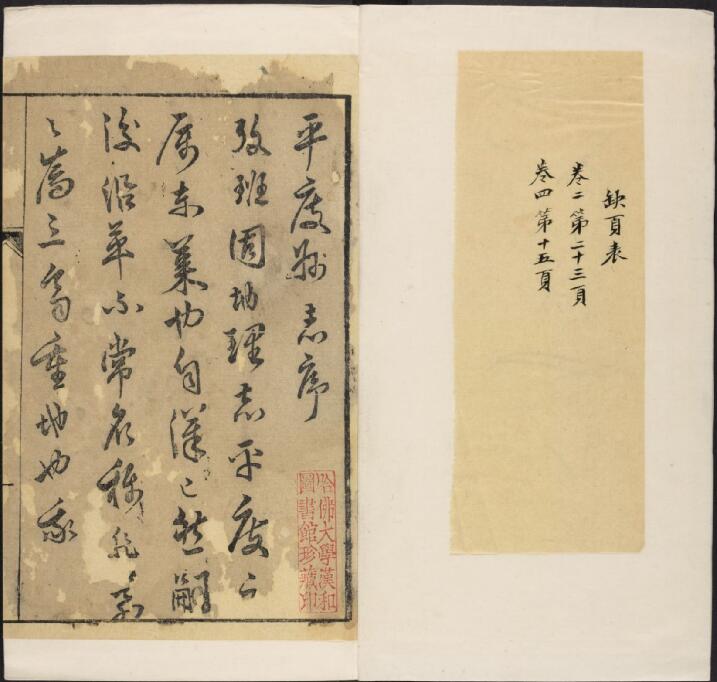 缺頁表
卷二第二十三頁
卷四第十五頁
平度州志序
攷班固地理志平度公
属東萊也自漢已然嗣
後沿革不常名稱
三重地也我
哈佛大學漢和
圖書館珍藏印